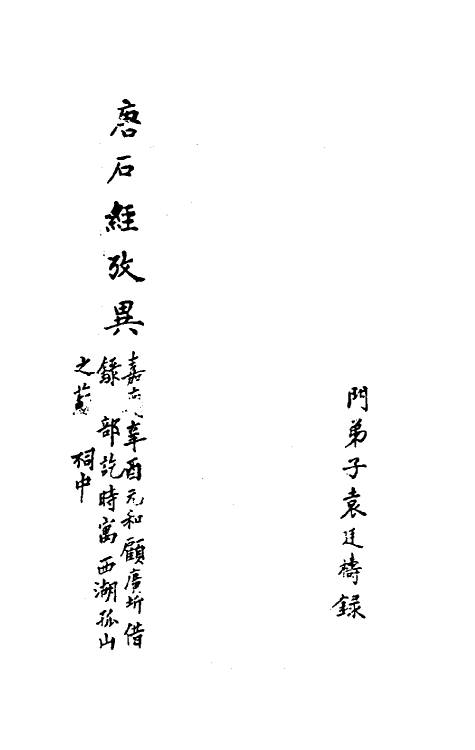 門弟子袁廷檮錄
唐石經攷異
嘉慶辛酉元和顧廣圻借
錄 部訖時寓西湖孤山
之 祠中